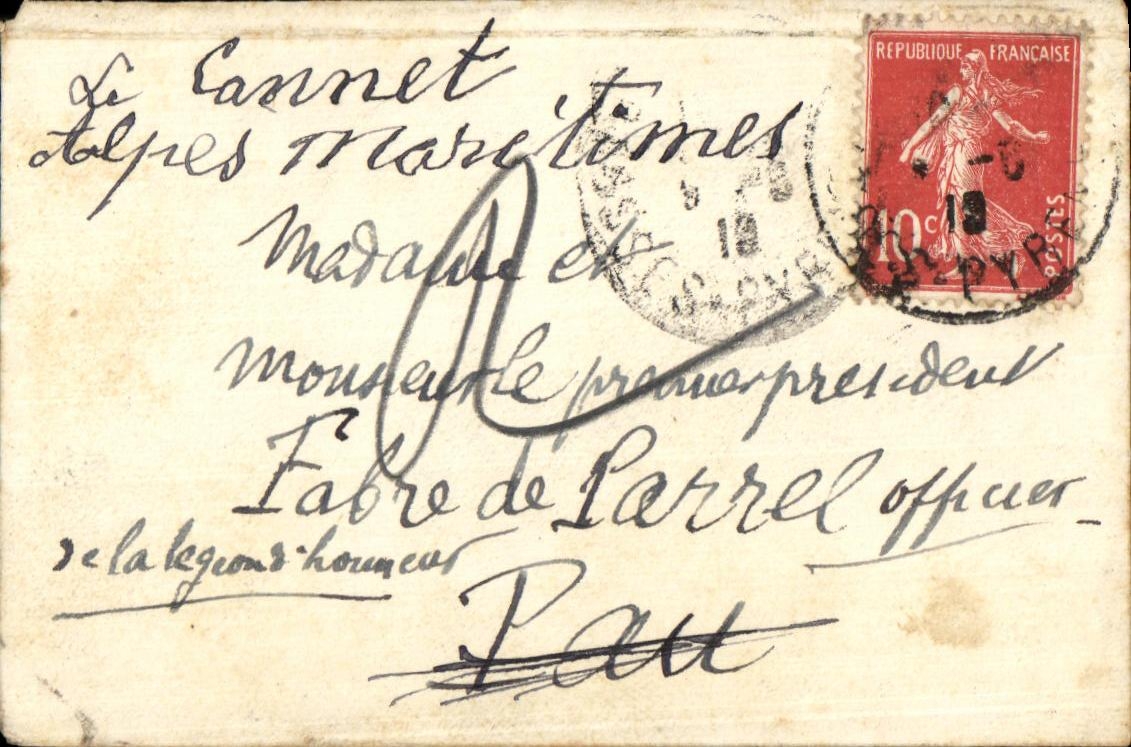 Le Cannet
Alpes Maritimes
REPUBLIQUE FRANÇAISE
10c
POSTES
Madame et
monsieur le premier president
Fabre de Parrel officier
de la legion d'honneur
Pau